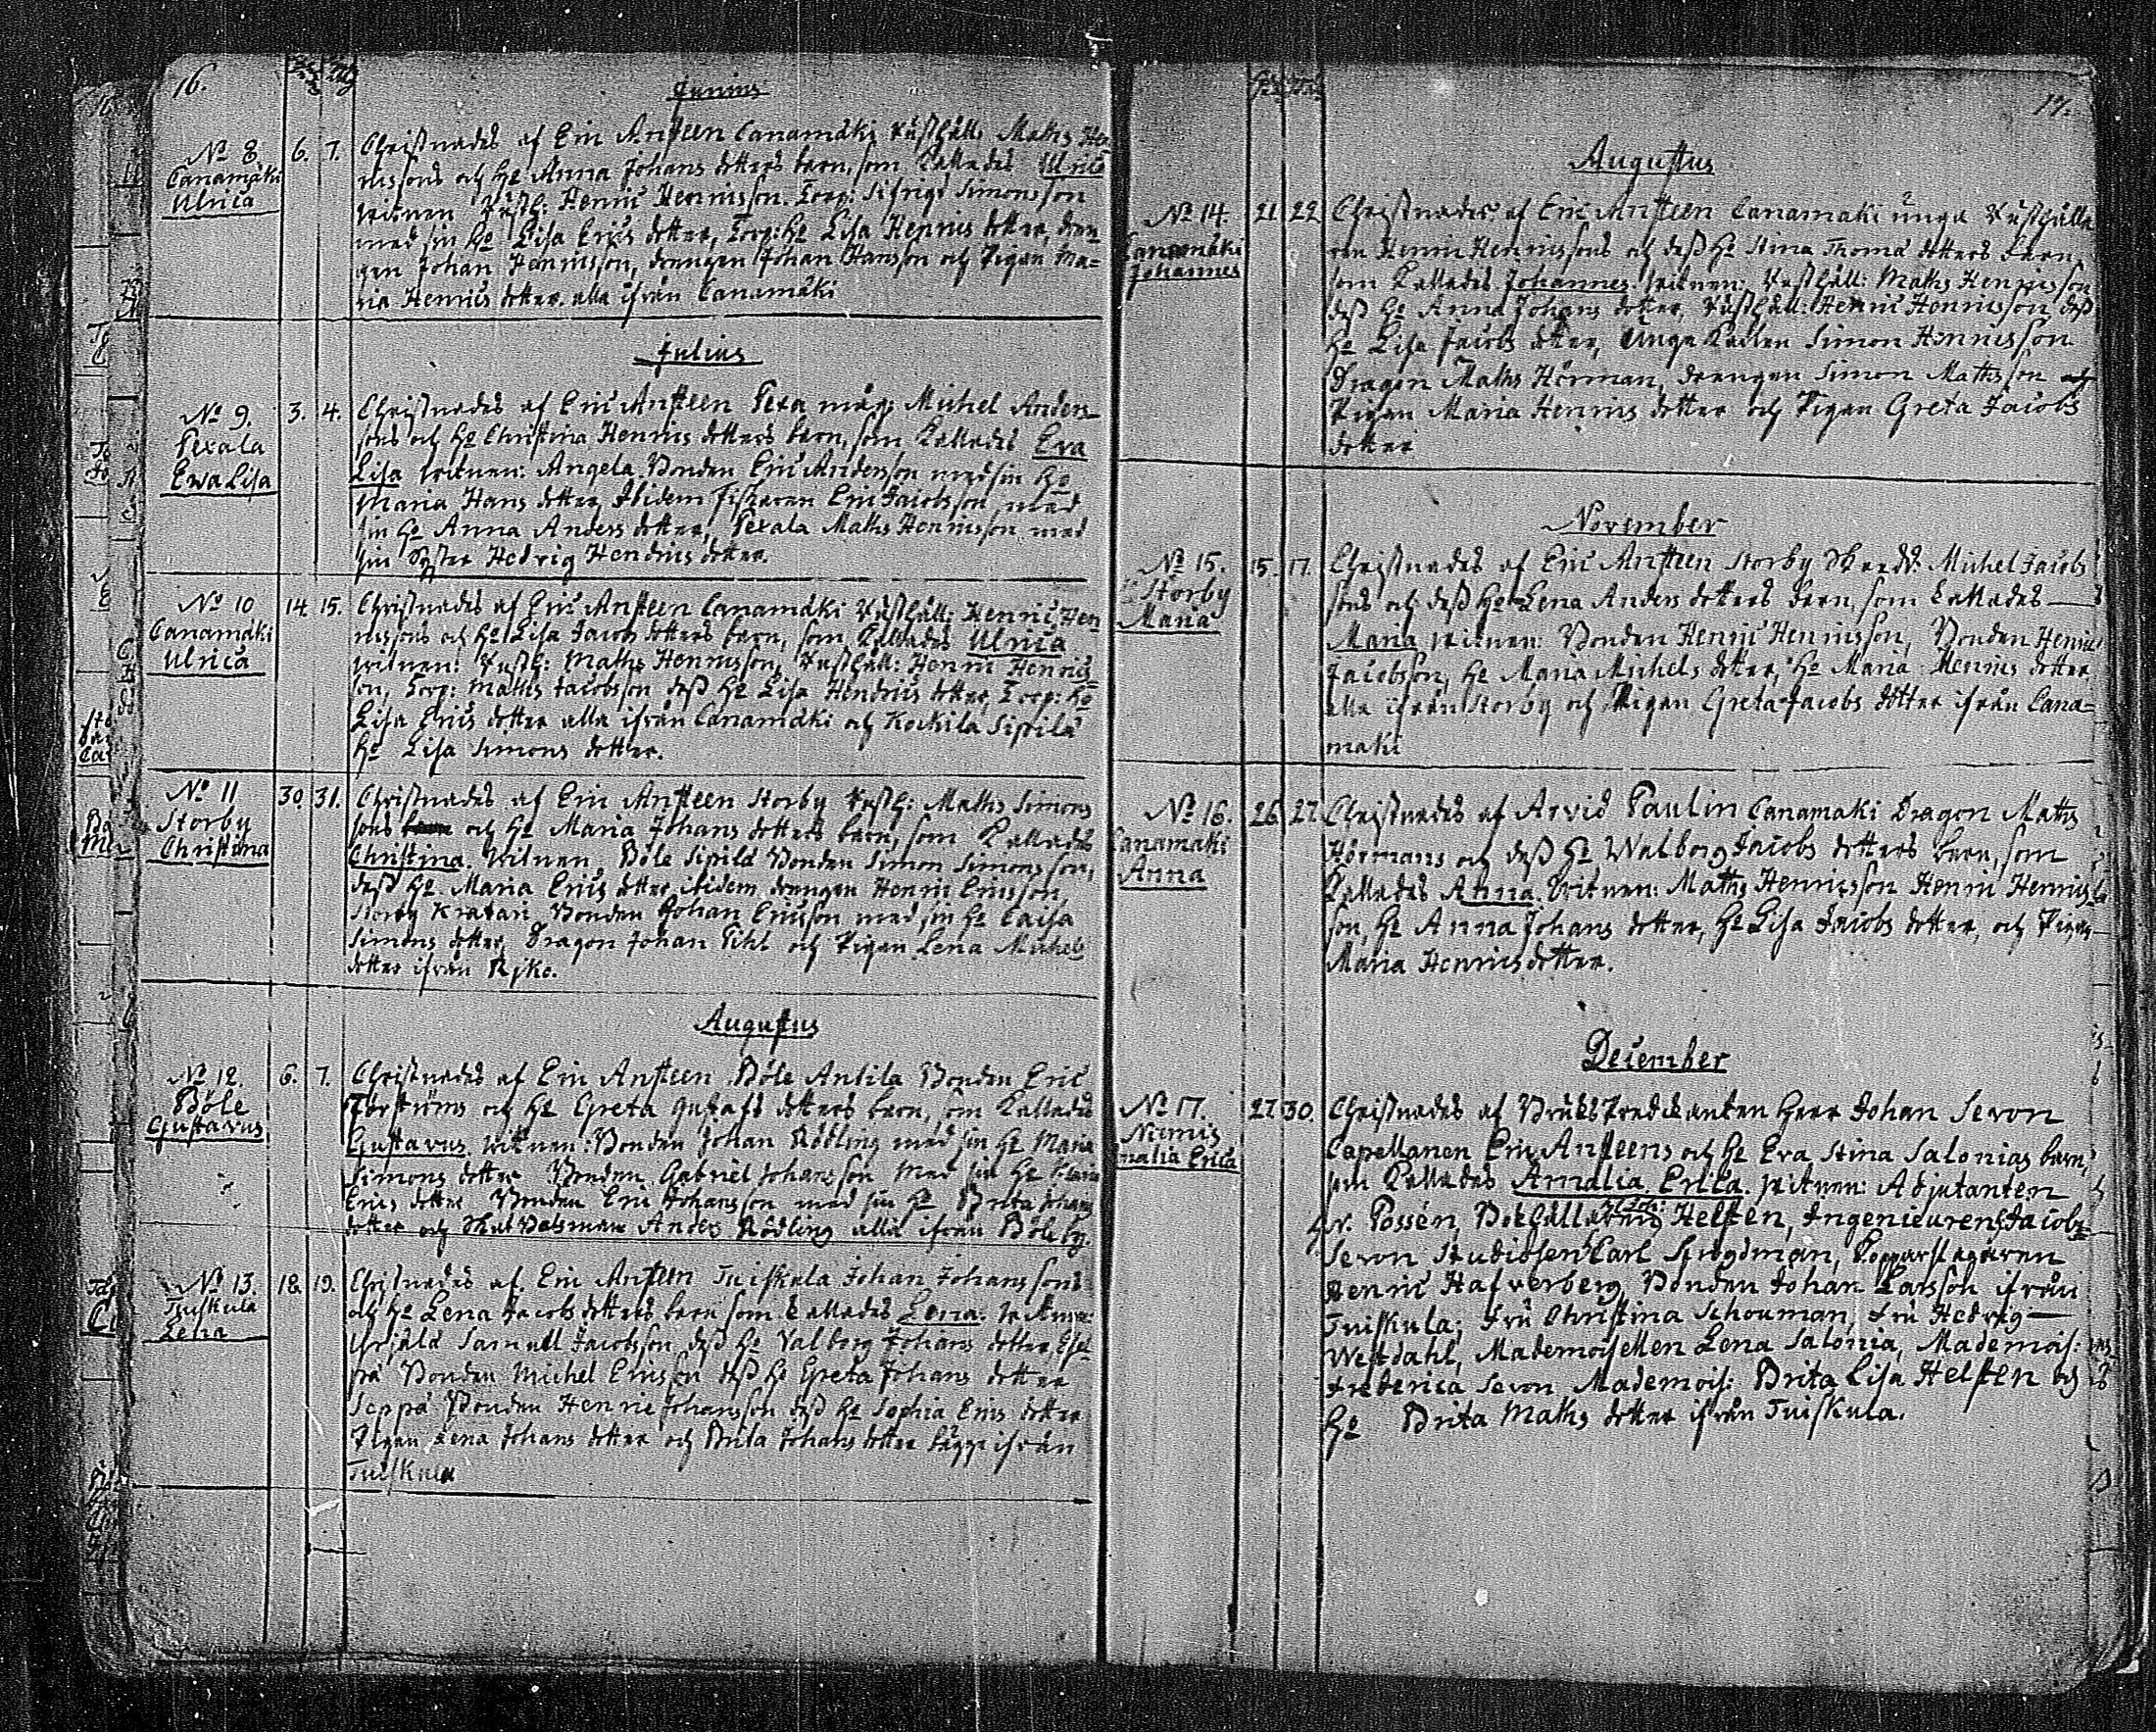 16.
Junius
No 8
Canamäki
Ulrica
6. 7.
Christnades af Eric Ansteen Canamäki Rusthåll: Maths Hen
ricssons och Ho Anna Johans dotters barn, som kallades Ulrica
witnen Rusth: Henric Henricsson. Torp: Sifrigs Simonsson
med sin Ho Lisa Erics dotter, Torp: Ho Lisa Henrics dotter, dren
gen Johan Henricsson, drengen Johan Hansson och Pigan Ma=
ria Henrics dotter. alla ifrån Canamäki
Julius
No 9.
Pexala
Ewa Lisa
3. 4.
Christnades af Eric Ansteen Pexa måg: Michel Anders
sons och Ho Christina Henrics dotters barn, som kallades Eva
Lisa witnen: Angela Bonden Eric Andersson med sin Ho
Maria Hans dotter, Ibidem Fiskaren Eric Jacobsson med
sin Ho Anna Anders dotter, Pexala Maths Henricsson med
sin Syster Hedvig Hendrics dotter.
No 10
Canamäki
Ulrica
14. 15.
Christnades af Eric Ansteen Canamäki Rusthåll: Henric Hen
ricssons och Ho Lisa Jacobs dotters barn, som kallades Ulrica
witnen: Rusth: Maths Henricsson, Rusthåll: Henric Henrics
son, Torp: Maths Jacobsson dess Ho Lisa Hendrics dotter, Torp: Ho
Lisa Erics dotter alla ifrån Canamäki och Kockila Sipilä
Ho Lisa Simons dotter.
No 11
Storby
Christina
30. 31.
Christnades af Eric Ansteen Storby Rusth: Maths Simons
sons och Ho Maria Johans dotters barn, som kallades
Christina. Witnen Böle Sipilä Bonden Simon Simonsson,
dess Ho Maria Erics dotter, ibidem drengen Henric Ericsson,
Storby Kratari Bonden Johan Ericsson med sin Ho Caisa
Simons dotter, Dragon Johan Pihl och Pigan Lena Michels
dotter ifrån Rjko.
Augustus
No 12.
Böle
Gustavus
6. 7.
Christnades af Eric Ansteen Böle Antila Bonden Eric
och Ho Greta Gustafs dotters barn, som kallades
Gustavus. witnen: Bonden Johan Rödling med sin Ho Maria
Simons dotter Bonden Gabriel Johansson med sin Ho Maria
Erics dotter Bonden Eric Johansson med sin Ho Brita Johans
dotter och Anders Rödling alla ifrån Böle by.
No 13.
Tuiskula
Lena
18. 19.
Christnades af Eric Ansteen Tuiskula Johan Johanssons
och Ho Lena Jacobs dotters barn som kallades Lena. witnen:
Samuel Jacobsson dess Ho Valborg Johans dotter,
Bonden Michel Ericsson dess Ho Greta Johans dotter
Seppä Bonden Henric Johansson dess Ho Sophia Erics dotter
Pigan Lena Johans dotter och Brita Johans dotter bägge ifrån
Tuiskula
17.
Augustus
No 14.
Canamäki
Johannes
21 22
Christnades af Eric Ansteen Canamaki unga Rusthålla
ren Henric Henricssons och dess Ho Stina Thomæ dotters barn,
som kallades Johannes witnen: Rusthåll: Maths Henricsson
dess Ho Anna Johans dotter, Rusthåll: Henric Henricsson dess
Ho Lisa Jacobs dotter, Unga Simon Henricsson
Dragon Maths Hörman, drengen Simon Mathsson och
Pigan Maria Henrics dotter och Pigan Greta Jacobs
dotter
November
No 15.
Storby
Maria
15. 17.
Christnades af Eric Ansteen Storby Michel Jacobs
sons och dess Ho Lena Anders dotters barn, som kallades
Maria witnen: Bonden Henric Henricsson, Bonden Henric
Jacobsson, Ho Maria Michels dotter, Ho Maria Henrics dotter
alla ifrån Storby och Pigan Greta Jacobs dotter ifrån Cana=
maki
No 16.
Canamaki
Anna
26. 27.
Christnades af Arvid Paulin Canamaki Dragon Maths
Hörmans och dess Ho Walborg Jacobs dotters barn, som
kallades Anna. Witnen: Maths Henricsson Henric Henrics
son, Ho Anna Johans dotter, Ho Lisa Jacobs dotter, och Pigan
Maria Henrics dotter.
December
No 17.
Nurmis
Amalia Erica
27. 30.
Christnades af Bruks Predikanten Herr Johan Sevon
Capellanen Eric Ansteens och Ho Eva Stina Salonias barn,
som kallades Amalia Erica. witnen: Adjutanten
Possén, Bokhållaren Helsten, Ingenieuren Jacob
Sevon Studiosen Carl Kopparslagaren
Henric Hafverberg, Bonden Johan Larsson ifrån
Tuiskula; Fru Christina Schouman, Fru Hedvig
Westdahl, Mademoisellen Lena Salonia, Mademois:
Frederica Sevon Mademois: Brita Lisa Helsten och
Ho Brita Maths dotter ifrån Tuiskula.